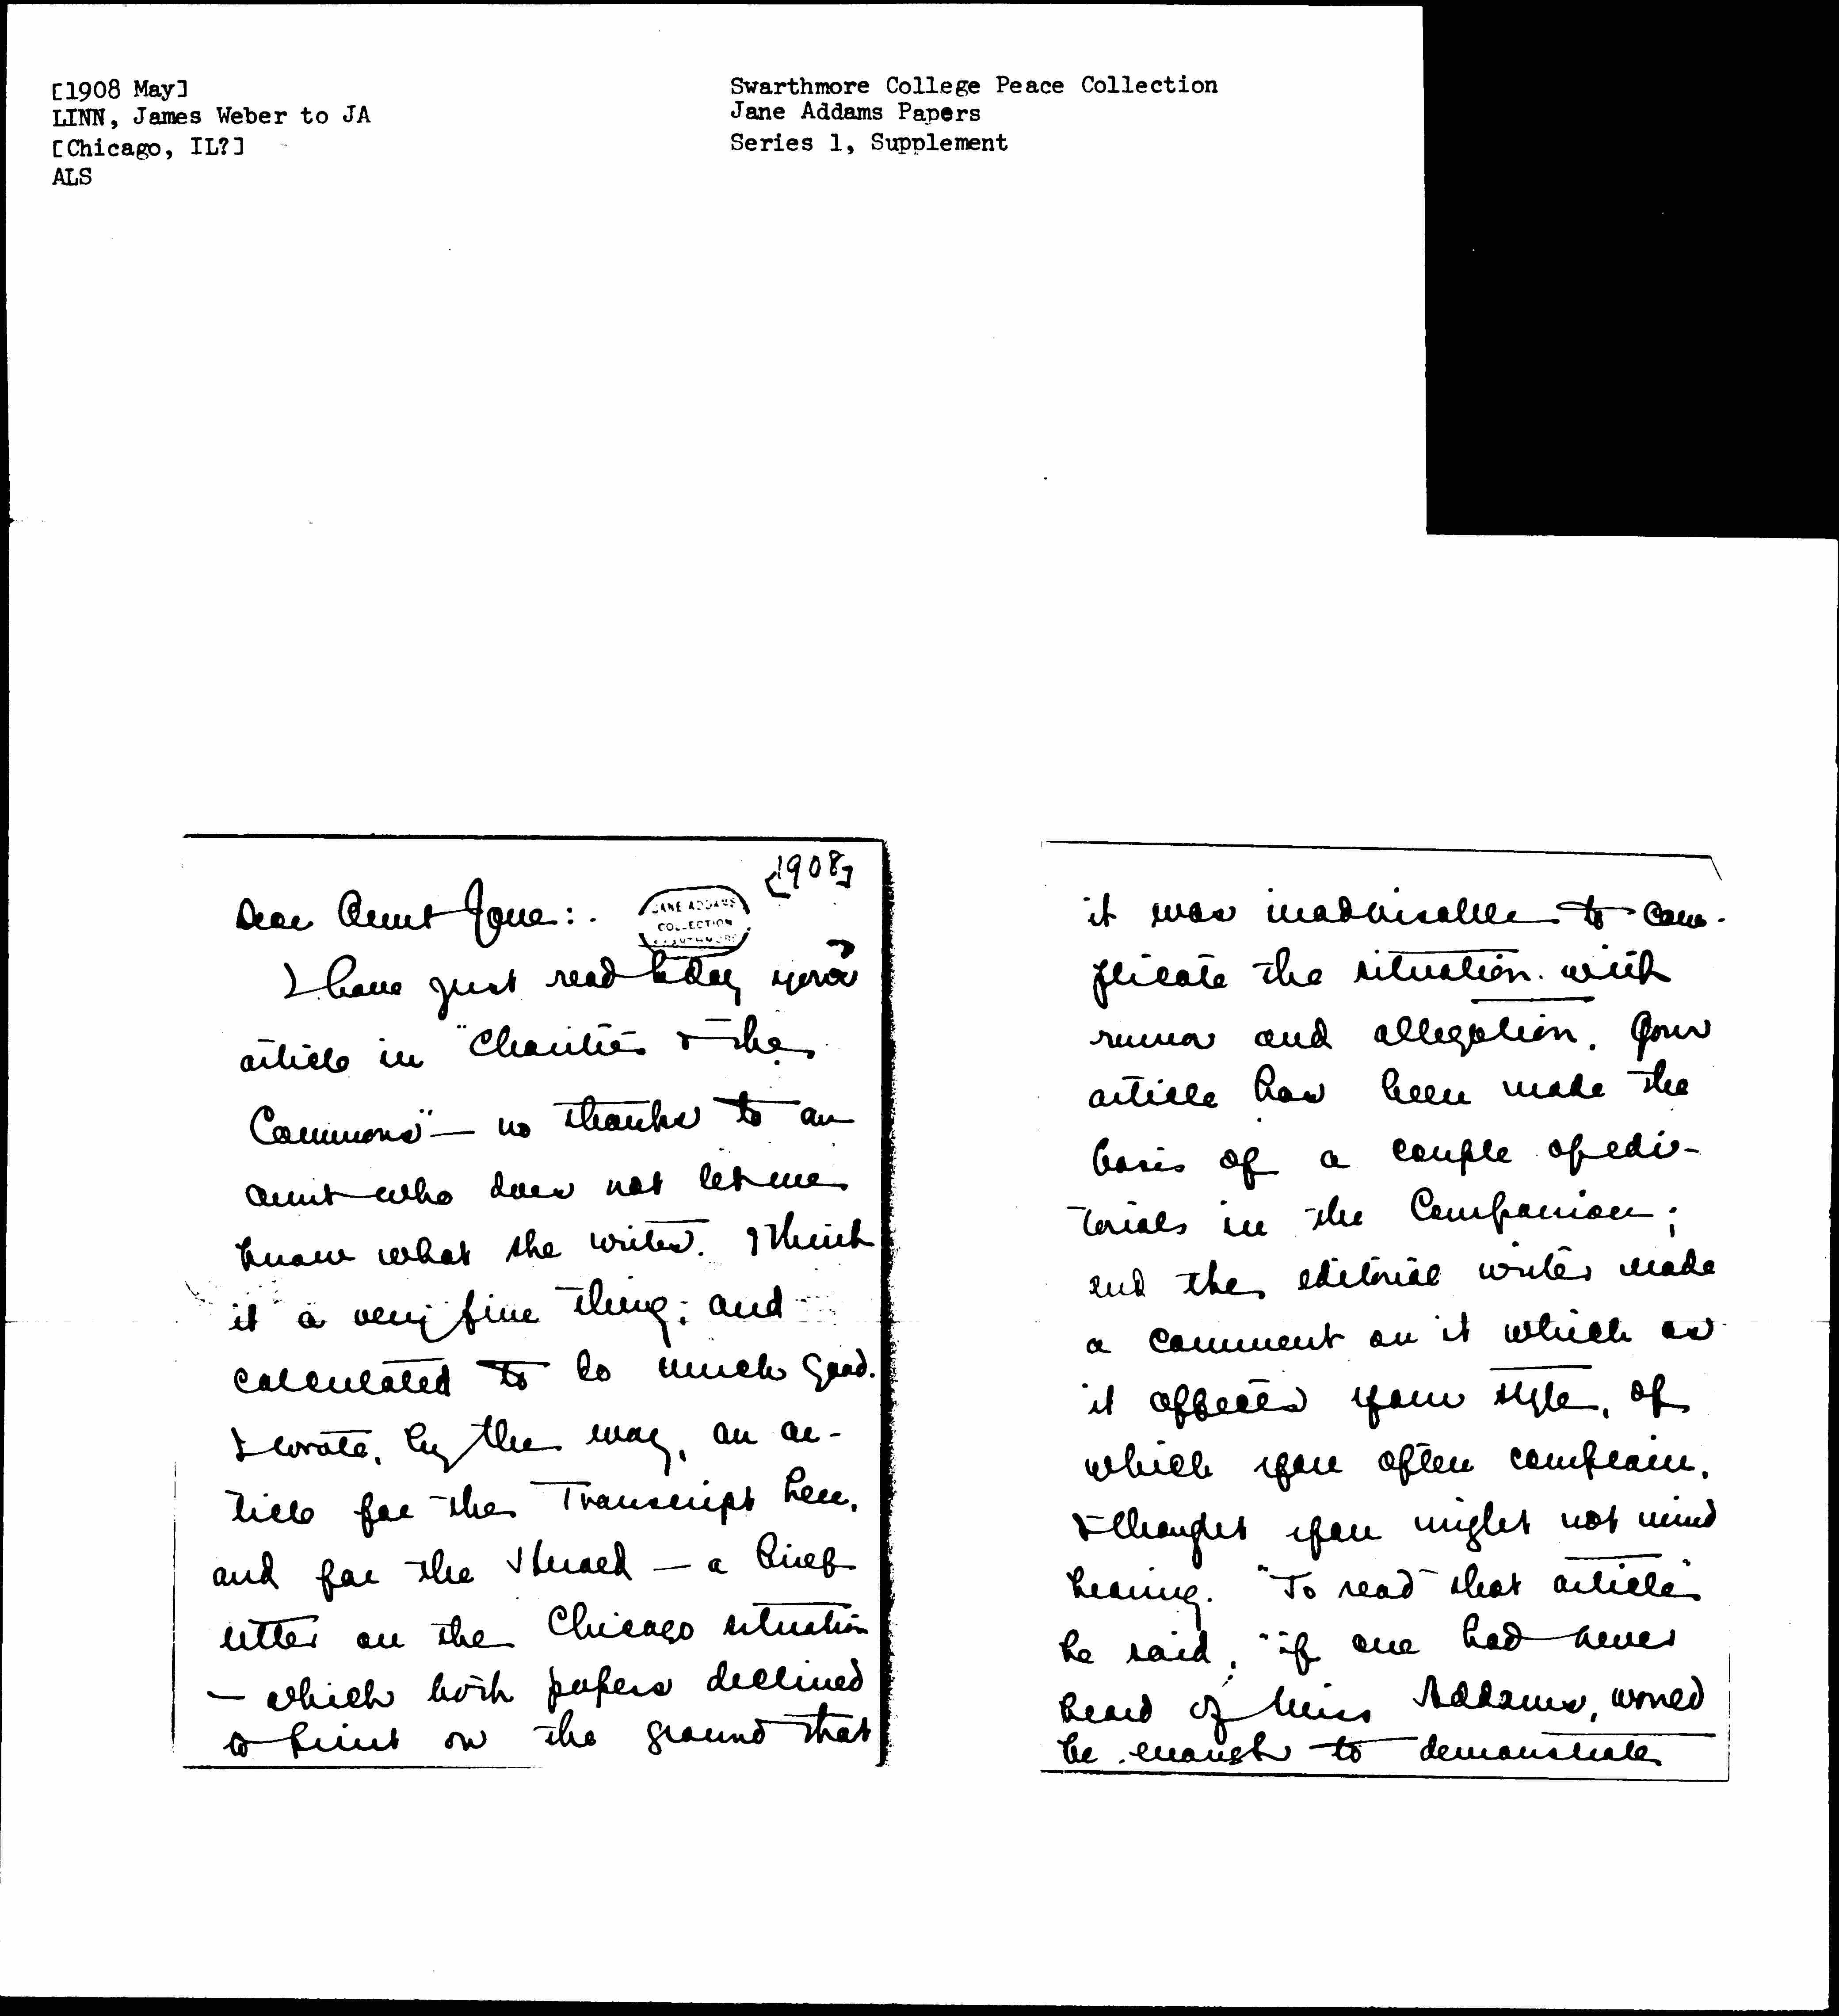 [1908 May]
LINN, James Weber to JA
[Chicago, IL?]
ALS
Swarthmore College Peace Collection
Jane Addams Papers
Series 1, Supplement
[1908]
JANE ADDAMS
COLLECTION
SWARTHMORE
Dear Aunt Jane:
I have just read today your
article in "Charities & The
Commons" — no thanks to an
aunt who does not let me
know what she writes. I think
it a very fine thing; and
calculated to do much good.
I wrote, by the way, an ar-
ticle for the Transcript here,
and for the Herald — a brief
letter on the Chicago situation
— which both papers declined
to print on the ground that
it was inadvisable to com-
plicate the situation with
rumor and allegation. Your
article has been made the
basis of a couple of edi-
torials in the Companion;
and the editorial writer made
a comment on it which as
it affects your style, of
which you often complain,
I thought you might not mind
hearing. "To read that article"
he said, "if one had never
heard of Miss Addams, would
be enough to demonstrate